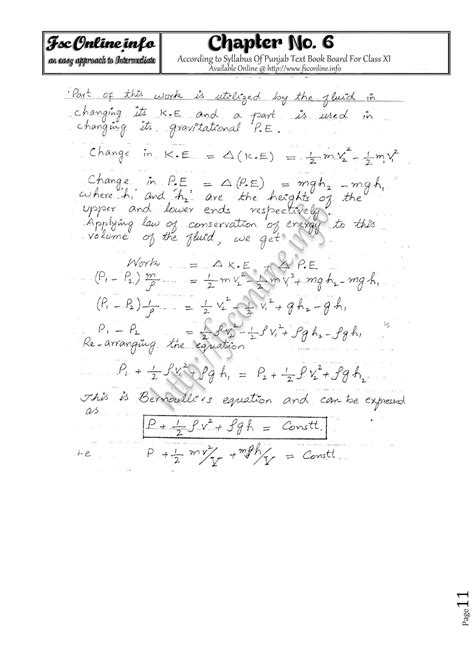 FscOnline.info
an easy approach to Intermediate
Chapter No. 6
According to Syllabus Of Punjab Text Book Board For Class XI
Available Online @ http://www.fsconline.info
Part of this work is utilized by the fluid in
changing its K.E and a part is used in
changing its gravitational P.E.
Change in K.E = Δ(K.E) = ½ m v₂² - ½ m v₁²
Change in P.E = Δ(P.E) = mgh₂ - mgh₁
where 'h₁' and 'h₂' are the heights of the
upper and lower ends respectively.
Applying law of conservation of energy to this
volume of the fluid, we get
Work = Δ K.E + Δ P.E
(P₁ - P₂) m/ρ = ½ m v₂² - ½ m v₁² + mgh₂ - mgh₁
(P₁ - P₂) 1/ρ = ½ v₂² - ½ v₁² + gh₂ - gh₁
P₁ - P₂ = ½ ρv₂² - ½ ρv₁² + ρgh₂ - ρgh₁
Re-arranging the equation
P₁ + ½ ρv₁² + ρgh₁ = P₂ + ½ ρv₂² + ρgh₂
This is Bernoulli's equation and can be expressed
as
P + ½ ρv² + ρgh = Constt.
i.e P + ½ mv²/V + mgh/V = Constt.
http://fsconline.info
Page 11